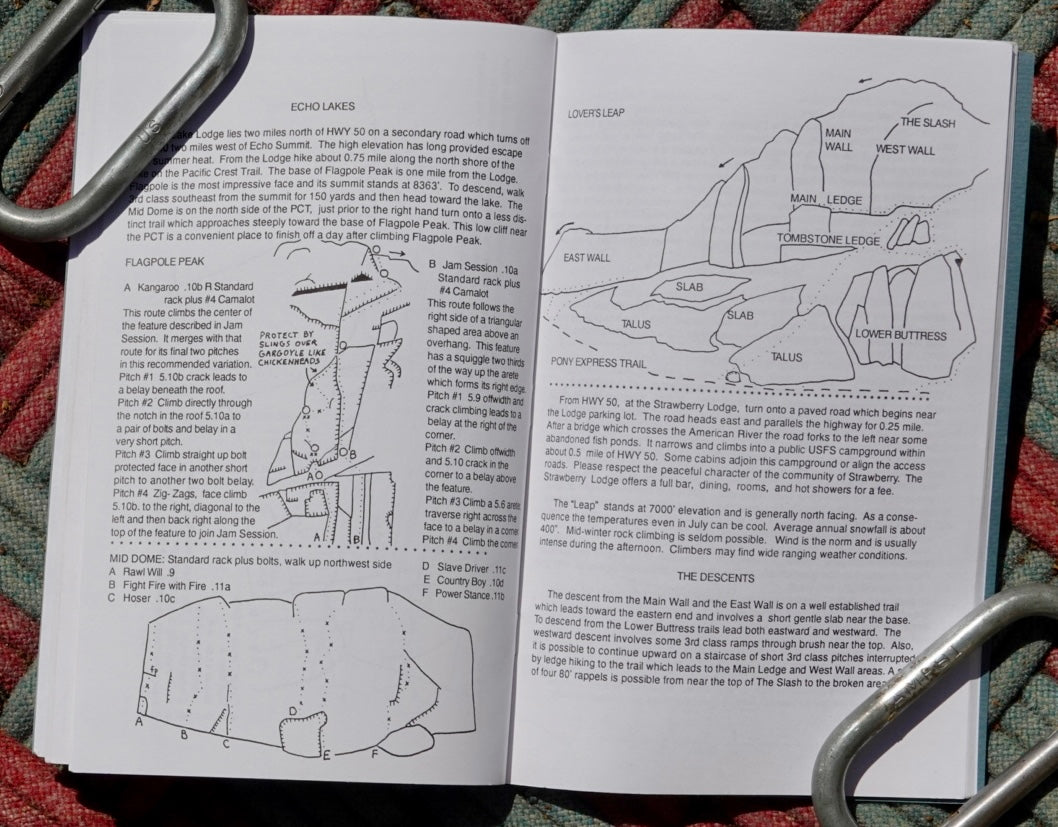 ECHO LAKES
Lake Lodge lies two miles north of HWY 50 on a secondary road which turns off
two miles west of Echo Summit. The high elevation has long provided escape
summer heat. From the Lodge hike about 0.75 mile along the north shore of the
on the Pacific Crest Trail. The base of Flagpole Peak is one mile from the Lodge.
Flagpole is the most impressive face and its summit stands at 8363'. To descend, walk
3rd class southeast from the summit for 150 yards and then head toward the lake. The
Mid Dome is on the north side of the PCT, just prior to the right hand turn onto a less dis-
tinct trail which approaches steeply toward the base of Flagpole Peak. This low cliff near
the PCT is a convenient place to finish off a day after climbing Flagpole Peak.
FLAGPOLE PEAK
A Kangaroo .10b R Standard
rack plus #4 Camalot
This route climbs the center of
the feature described in Jam
Session. It merges with that
route for its final two pitches
in this recommended variation.
Pitch #1 5.10b crack leads to
a belay beneath the roof.
Pitch #2 Climb directly through
the notch in the roof 5.10a to
a pair of bolts and belay in a
very short pitch.
Pitch #3 Climb straight up bolt
protected face in another short
pitch to another two bolt belay.
Pitch #4 Zig-Zags, face climb
5.10b. to the right, diagonal to the
left and then back right along the
top of the feature to join Jam Session.
PROTECT BY
SLINGS OVER
GARGOYLE LIKE
CHICKENHEADS
A
B
A
B
B Jam Session .10a
Standard rack plus
#4 Camalot
This route follows the
right side of a triangular
shaped area above an
overhang. This feature
has a squiggle two thirds
of the way up the arete
which forms its right edge.
Pitch #1 5.9 offwidth and
crack climbing leads to a
belay at the right of the
corner.
Pitch #2 Climb offwidth
and 5.10 crack in the
corner to a belay above
the feature.
Pitch #3 Climb a 5.6 arete
traverse right across the
face to a belay in a corner
Pitch #4 Climb the corner
MID DOME: Standard rack plus bolts, walk up northwest side
A Rawl Will .9
B Fight Fire with Fire .11a
C Hoser .10c
D Slave Driver .11c
E Country Boy .10d
F Power Stance .11b
A
B
C
D
E
F
LOVER'S LEAP
THE SLASH
MAIN
WALL
WEST WALL
MAIN LEDGE
TOMBSTONE LEDGE
EAST WALL
SLAB
SLAB
TALUS
LOWER BUTTRESS
TALUS
PONY EXPRESS TRAIL
From HWY 50, at the Strawberry Lodge, turn onto a paved road which begins near
the Lodge parking lot. The road heads east and parallels the highway for 0.25 mile.
After a bridge which crosses the American River the road forks to the left near some
abandoned fish ponds. It narrows and climbs into a public USFS campground within
about 0.5 mile of HWY 50. Some cabins adjoin this campground or align the access
roads. Please respect the peaceful character of the community of Strawberry. The
Strawberry Lodge offers a full bar, dining, rooms, and hot showers for a fee.
The "Leap" stands at 7000' elevation and is generally north facing. As a conse-
quence the temperatures even in July can be cool. Average annual snowfall is about
400". Mid-winter rock climbing is seldom possible. Wind is the norm and is usually
intense during the afternoon. Climbers may find wide ranging weather conditions.
THE DESCENTS
The descent from the Main Wall and the East Wall is on a well established trail
which leads toward the eastern end and involves a short gentle slab near the base.
To descend from the Lower Buttress trails lead both eastward and westward. The
westward descent involves some 3rd class ramps through brush near the top. Also,
it is possible to continue upward on a staircase of short 3rd class pitches interrupted
by ledge hiking to the trail which leads to the Main Ledge and West Wall areas. A
of four 80' rappels is possible from near the top of The Slash to the broken area